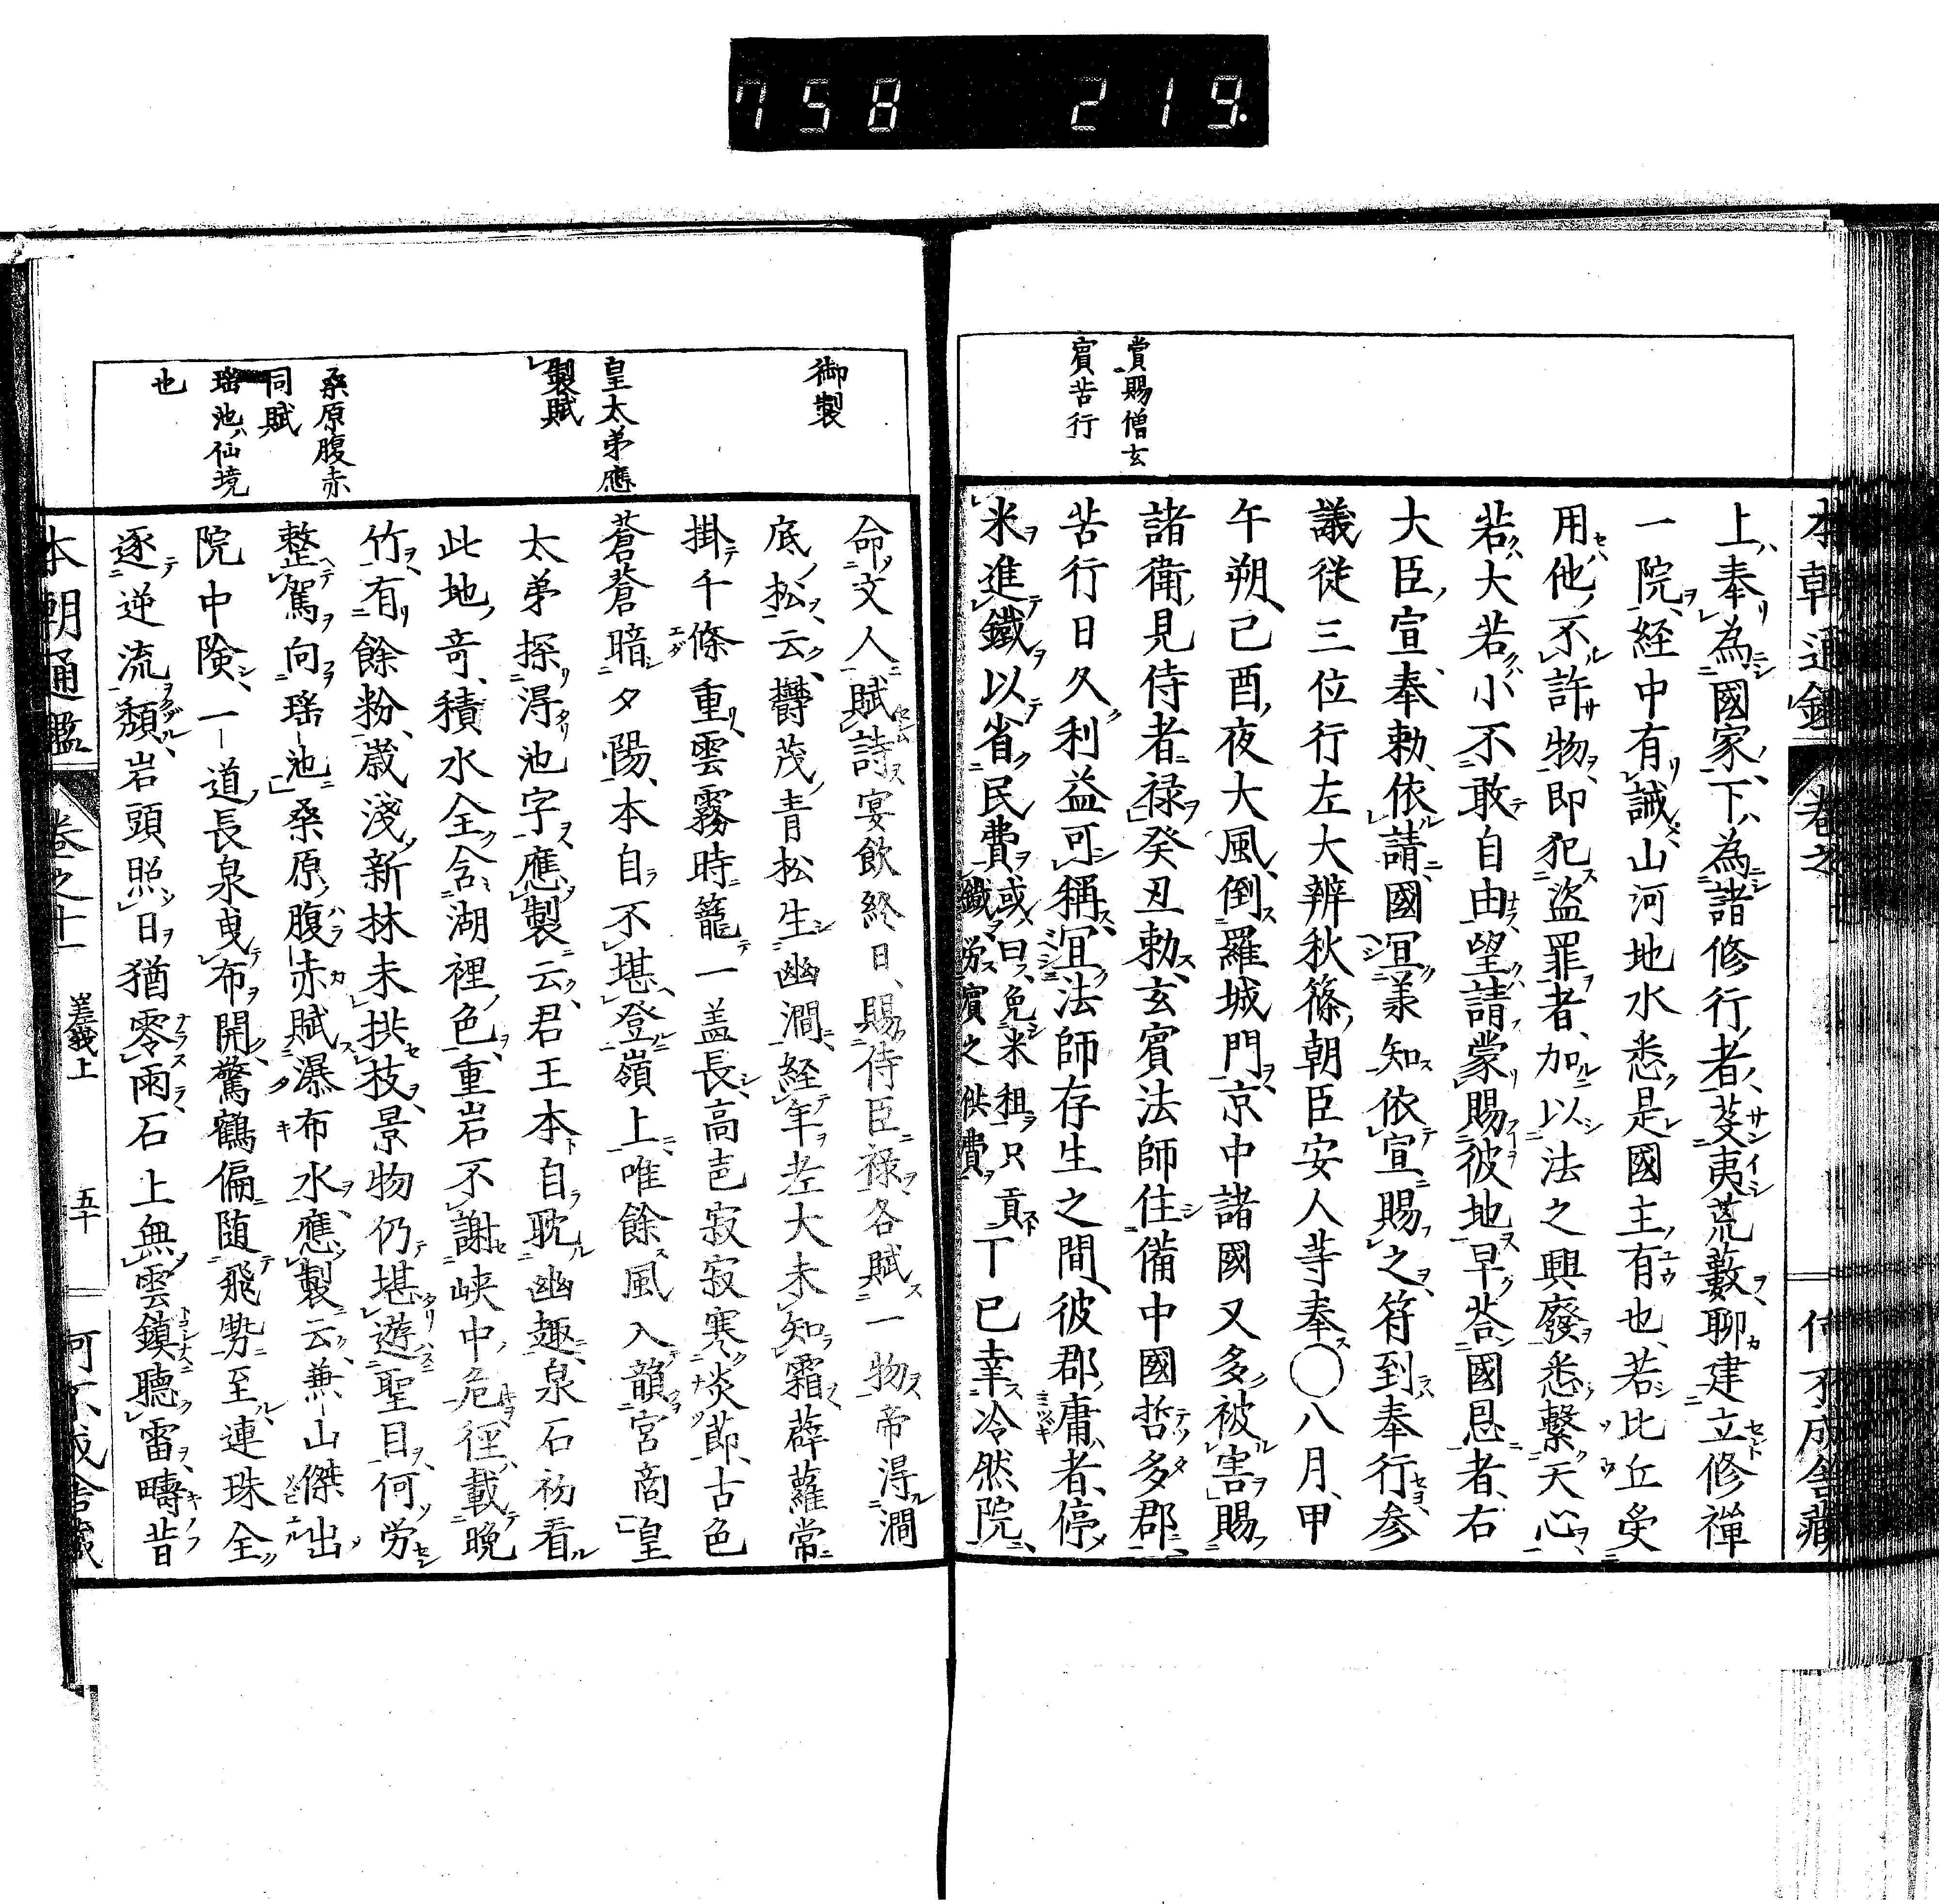 758 219.
本朝通鑑 卷之
賞賜僧玄
賓苦行
上奉為國家下為諸修行者芟夷荒藪聊建立修禪
一院経中有誡山河地水悉是國主有也若比丘受
用他不許物即犯盜罪者加以法之興廢悉繫天心
若大若小不敢自由望請蒙賜彼地早荅國恩者右
大臣宣奉勅依請國冝羕知依宣賜之符到奉行参
議従三位行左大辨秋篠朝臣安人等奉〇八月甲
午朔己酉夜大風倒羅城門京中諸國又多被害賜
諸衛見侍者禄癸丑勅玄賓法師住備中國哲多郡
苦行日久利益可稱冝法師存生之間彼郡庸者停
米進鐵以省民費或曰免米租只貢鐵労賓之供費丁巳幸冷然院
御製
皇太弟應
製賦
桑原腹赤
同賦
瑶池仙境
也
命文人賦詩宴飲終日賜侍臣禄各賦一物帝淂澗
底松云欝茂青松生幽澗経年老大未知霜薜蘿常
掛千條重雲霧時籠一盖長高声寂寂寒炎節古色
蒼蒼暗夕陽本自不堪登嶺上唯餘風入韻宮商皇
太弟探淂池字應製云君王本自耽幽趣泉石初看
此地竒積水全含湖裡色重岩不謝峡中危徑載晩
竹有餘粉嵗淺新林未拱枝景物仍堪遊聖目何労
整駕向瑶池桑原腹赤賦瀑布水應製云兼山傑出
院中険一道長泉曳布開驚鶴偏随飛勢至連珠全
逐逆流頽岩頭照日猶零雨石上無雲鎮聽雷疇昔
本朝通鑑 卷之十一 嵯峨上 五十 何不成舎蔵